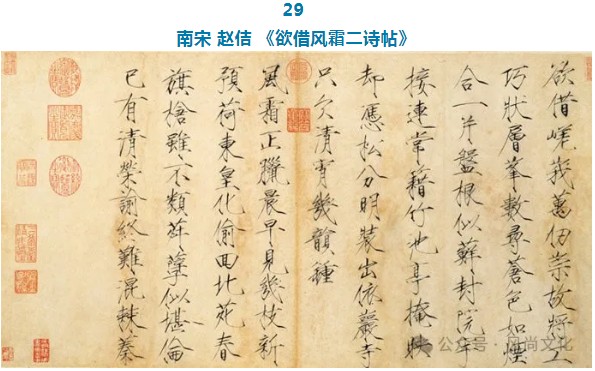 29
南宋 赵佶 《欲借风霜二诗帖》
欲借嵯峩萬仞崇故將工
巧狀層峯數尋蒼色如煙
合一片盤根似蘚封院宇
接連常藉竹池亭掩映
却憑松分明裝出依巖寺
只欠清宵幾韻鍾
風霜正臘晨早見幾枝新
預荷東皇化偷回北苑春
旗槍雖不類荈蘖似堪倫
已有清榮諭終難混棘蓁
公众号·风尚文化